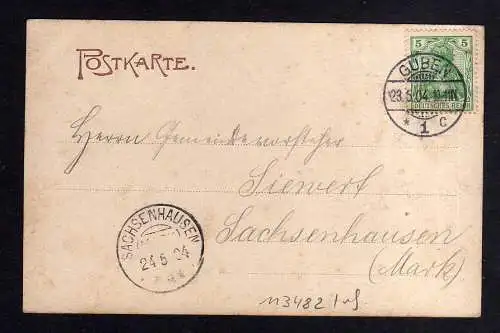 POSTKARTE.
5 5
GUBEN
23.5.04. 10-11N.
* 1 c
Herrn Gemeindevorsteher
Siewert
Sachsenhausen
(Mark)
SACHSENHAUSEN
24.5.04
113482